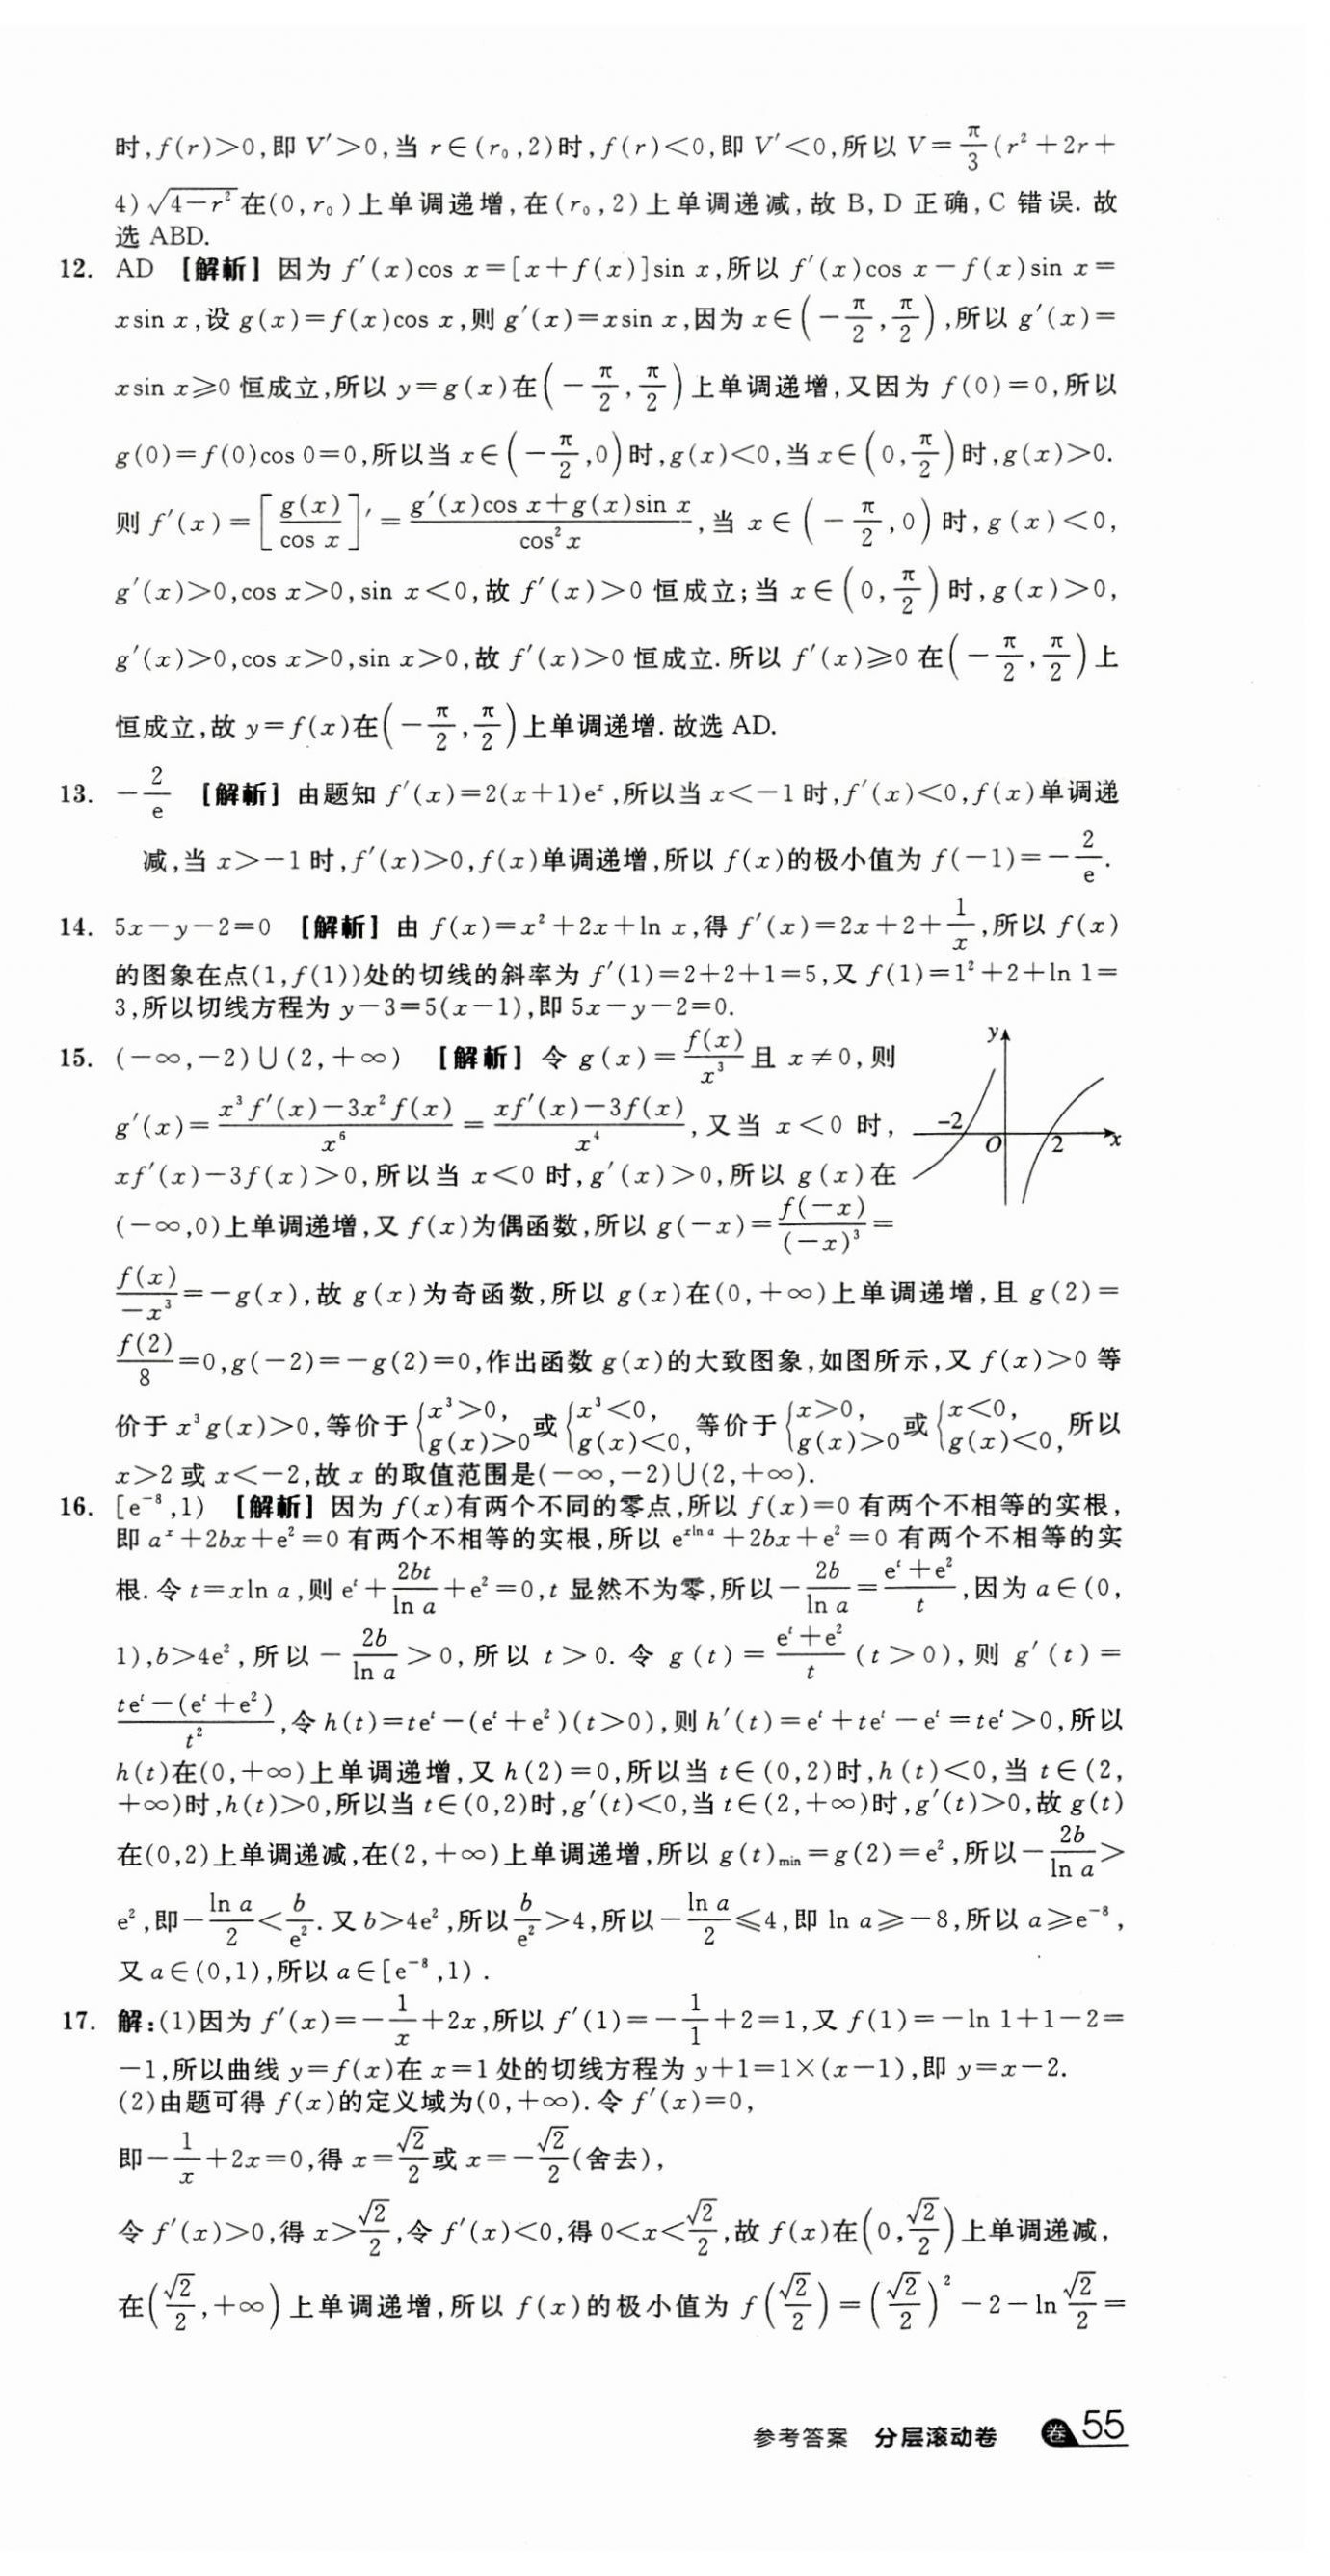 时,f(r)>0,即 V′>0,当 r∈(r₀,2)时,f(r)<0,即 V′<0,所以 V=π/3(r²+2r+
4)√(4−r²)在(0,r₀)上单调递增,在(r₀,2)上单调递减,故 B,D 正确,C 错误.故
选 ABD.
12. AD 【解析】因为 f′(x)cos x=[x+f(x)]sin x,所以 f′(x)cos x−f(x)sin x=
xsin x,设 g(x)=f(x)cos x,则 g′(x)=xsin x,因为 x∈(−π/2,π/2),所以 g′(x)=
xsin x⩾0 恒成立,所以 y=g(x)在(−π/2,π/2)上单调递增,又因为 f(0)=0,所以
g(0)=f(0)cos 0=0,所以当 x∈(−π/2,0)时,g(x)<0,当 x∈(0,π/2)时,g(x)>0.
则 f′(x)=[g(x)/cos x]′=(g′(x)cos x+g(x)sin x)/cos²x,当 x∈(−π/2,0)时,g(x)<0,
g′(x)>0,cos x>0,sin x<0,故 f′(x)>0 恒成立;当 x∈(0,π/2)时,g(x)>0,
g′(x)>0,cos x>0,sin x>0,故 f′(x)>0 恒成立.所以 f′(x)⩾0 在(−π/2,π/2)上
恒成立,故 y=f(x)在(−π/2,π/2)上单调递增.故选 AD.
13. −2/e 【解析】由题知 f′(x)=2(x+1)eˣ,所以当 x<−1 时,f′(x)<0,f(x)单调递
减,当 x>−1 时,f′(x)>0,f(x)单调递增,所以 f(x)的极小值为 f(−1)=−2/e.
14. 5x−y−2=0 【解析】由 f(x)=x²+2x+ln x,得 f′(x)=2x+2+1/x,所以 f(x)
的图象在点(1,f(1))处的切线的斜率为 f′(1)=2+2+1=5,又 f(1)=1²+2+ln 1=
3,所以切线方程为 y−3=5(x−1),即 5x−y−2=0.
15. (−∞,−2)∪(2,+∞) 【解析】令 g(x)=f(x)/x³ 且 x≠0,则
g′(x)=(x³f′(x)−3x²f(x))/x⁶=(xf′(x)−3f(x))/x⁴,又当 x<0 时,
xf′(x)−3f(x)>0,所以当 x<0 时,g′(x)>0,所以 g(x)在
(−∞,0)上单调递增,又 f(x)为偶函数,所以 g(−x)=f(−x)/(−x)³=
y
−2
O
2
x
f(x)/−x³=−g(x),故 g(x)为奇函数,所以 g(x)在(0,+∞)上单调递增,且 g(2)=
f(2)/8=0,g(−2)=−g(2)=0,作出函数 g(x)的大致图象,如图所示,又 f(x)>0 等
价于 x³g(x)>0,等价于{x³>0,g(x)>0或{x³<0,g(x)<0,等价于{x>0,g(x)>0或{x<0,g(x)<0,所以
x>2 或 x<−2,故 x 的取值范围是(−∞,−2)∪(2,+∞).
16. [e⁻⁸,1) 【解析】因为 f(x)有两个不同的零点,所以 f(x)=0 有两个不相等的实根,
即 aˣ+2bx+e²=0 有两个不相等的实根,所以 e^(xln a)+2bx+e²=0 有两个不相等的实
根.令 t=xln a,则 eᵗ+2bt/ln a+e²=0,t 显然不为零,所以−2b/ln a=(eᵗ+e²)/t,因为 a∈(0,
1),b>4e²,所以−2b/ln a>0,所以 t>0.令 g(t)=(eᵗ+e²)/t(t>0),则 g′(t)=
(teᵗ−(eᵗ+e²))/t²,令 h(t)=teᵗ−(eᵗ+e²)(t>0),则 h′(t)=eᵗ+teᵗ−eᵗ=teᵗ>0,所以
h(t)在(0,+∞)上单调递增,又 h(2)=0,所以当 t∈(0,2)时,h(t)<0,当 t∈(2,
+∞)时,h(t)>0,所以当 t∈(0,2)时,g′(t)<0,当 t∈(2,+∞)时,g′(t)>0,故 g(t)
在(0,2)上单调递减,在(2,+∞)上单调递增,所以 g(t)min=g(2)=e²,所以−2b/ln a>
e²,即−ln a/2<b/e².又 b>4e²,所以b/e²>4,所以−ln a/2⩽4,即 ln a⩾−8,所以 a⩾e⁻⁸,
又 a∈(0,1),所以 a∈[e⁻⁸,1).
17. 解:(1)因为 f′(x)=−1/x+2x,所以 f′(1)=−1/1+2=1,又 f(1)=−ln 1+1−2=
−1,所以曲线 y=f(x)在 x=1 处的切线方程为 y+1=1×(x−1),即 y=x−2.
(2)由题可得 f(x)的定义域为(0,+∞).令 f′(x)=0,
即−1/x+2x=0,得 x=√2/2或 x=−√2/2(舍去),
令 f′(x)>0,得 x>√2/2,令 f′(x)<0,得 0<x<√2/2,故 f(x)在(0,√2/2)上单调递减,
在(√2/2,+∞)上单调递增,所以 f(x)的极小值为 f(√2/2)=(√2/2)²−2−ln √2/2=
参考答案 分层滚动卷 卷 55